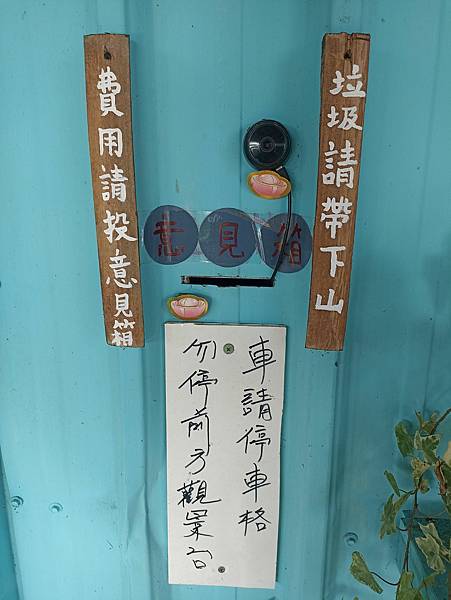 垃圾請帶下山
意見箱
費用請投意見箱
車請停車格
勿停前方觀景台